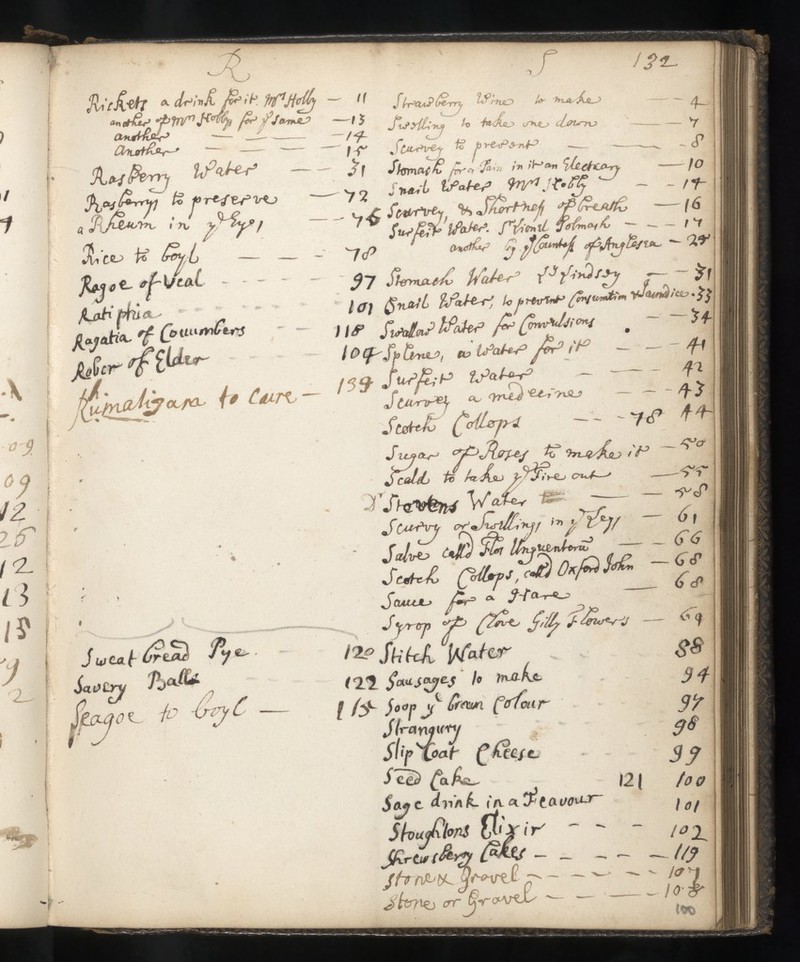 R
Rickets a drink for it Mrs Holby — 11
another of Mrs Hobby for ye same — 13
another — — — 14
Another — — — 15
Rasberry Water — 31
Rasberrys to preserve — 72
a Rheum in ye Eyes — 75
Rice to boyl — — — 78
Ragoe of Veal - - - - 97
Ratiphia - - - - 101
Ragatia of Cowumbers - - 118
Rober of Elder - - - 104
to Cure — 139
Sweat bread Pye. 120
Savery Balls 122
Seagoe to boyl — 115
S 132
Strawberry Wine to make — 4
Swelling to take one down — 7
Scurvey to prevent — - 8
Stomach for a Pain in it an Electuary — 10
Snail Water Mrs Hobby — - 14
Scurvey, & Shortness of breath — 16
Surfeit Water. Sr Lionel Tolmach - - - 17
another by ye Countess of Anglesea - 29
Stomach Water Lindsey — 31
Snail Water, to prevent Consumtion & Jaundice. 33
Swallow Water for Convulsions — 34
Splene, a Water for it — — — 41
Surfeit Water 42
Scurvey a medecine — — — 43
Scotch Collops — - 78 44
Sugar of Roses to make it — 50
Scald to take ye Fire out — 55
Dr Stevens Water — — 58
Scurvy or Swellings in ye Legs — 61
Salve call'd Flos Unguentoru — — 66
Scotch Collops, call'd Oxford John — 68
Sauce for a Hare — 68
Syrop of Clove Gilly Flowers — 69
Stitch Water 88
Sausages to make 94
Soop ye brown Colour 97
Strangury 98
Slip Coat Cheese 99
Seed Cake 121 100
Sage drink in a Feavour 101
Stoughtons Elixir - - - 102
Shrewsbery Cakes — - — - — 119
Stone & Gravel — - — - — 107
Stone or Gravel — - — - — 108
100